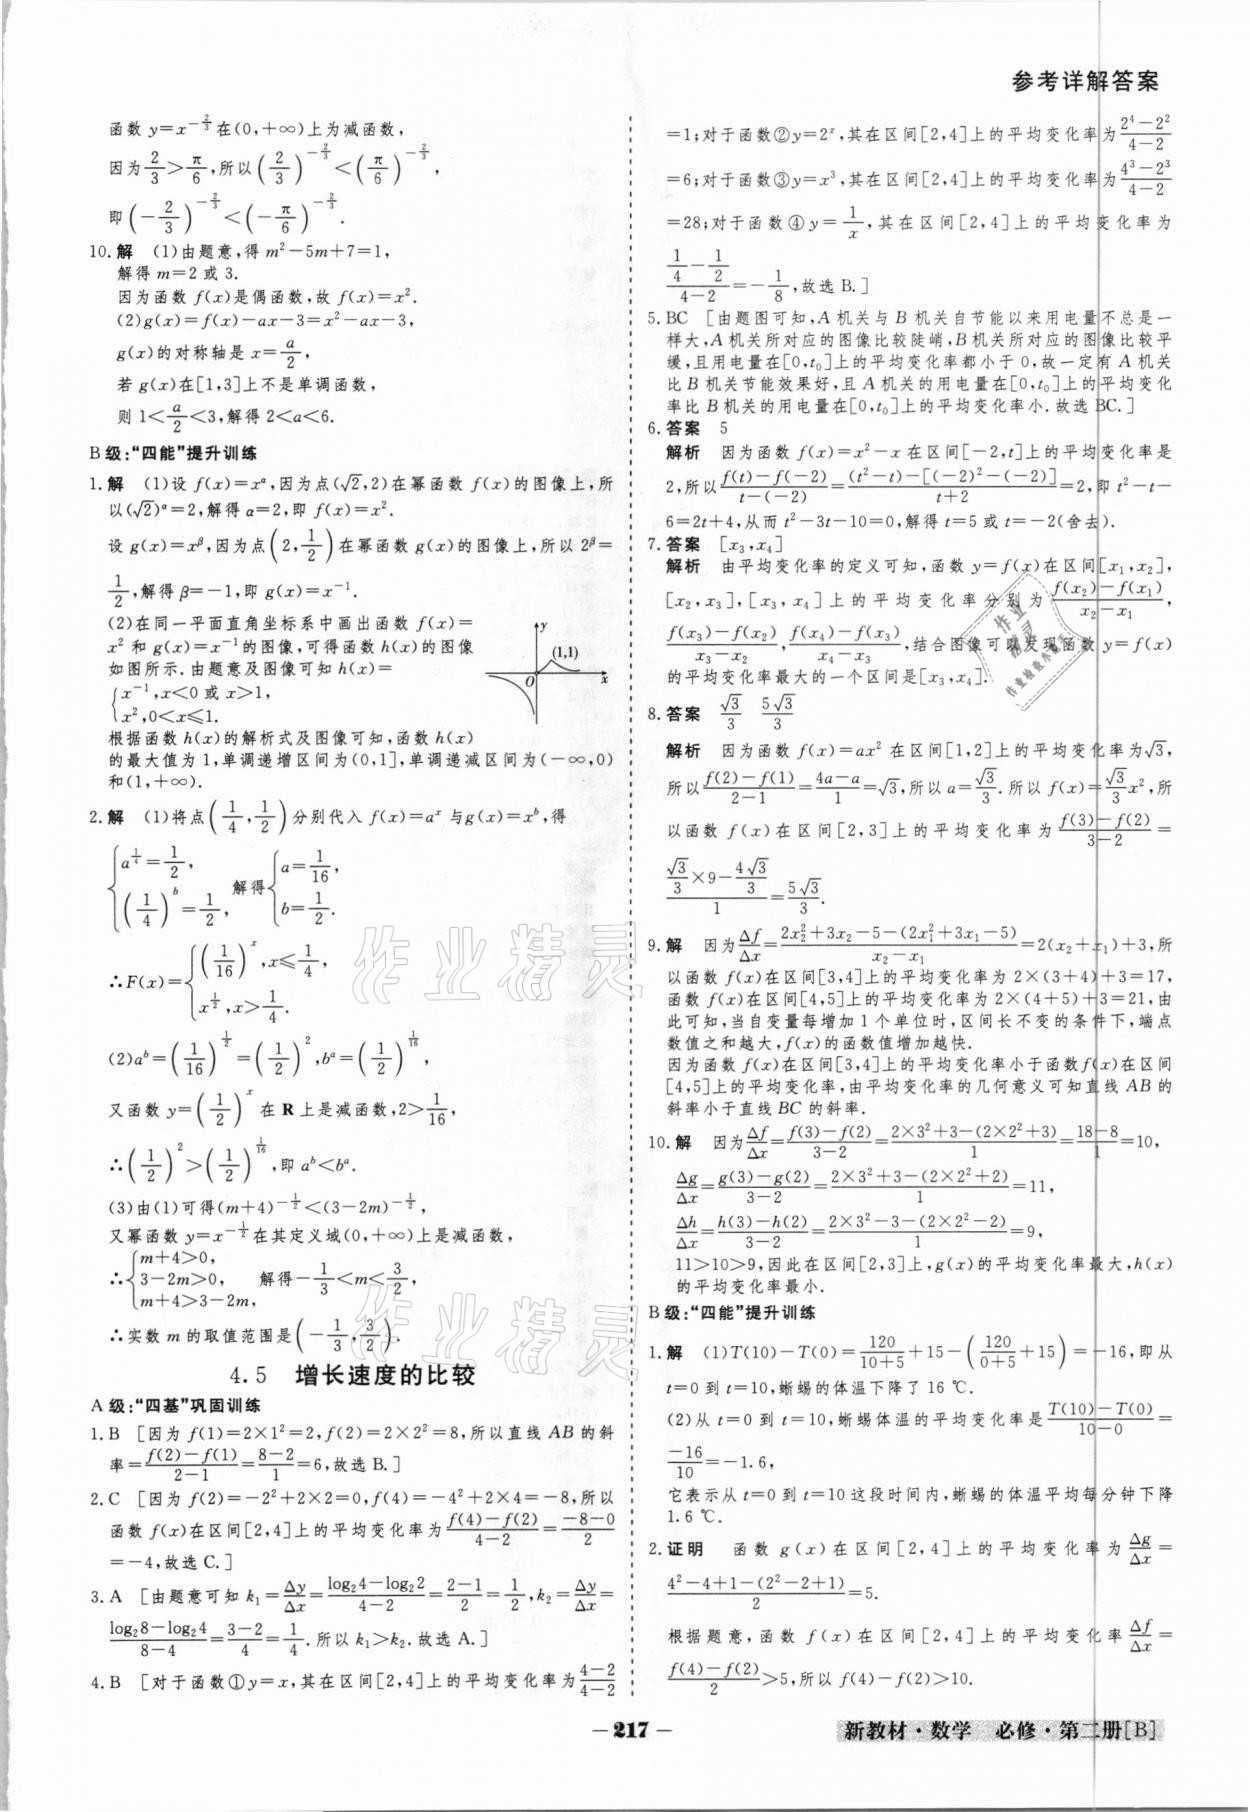 参考详解答案
函数 y=x^{-2/3} 在(0,+∞)上为减函数,
因为 2/3>π/6,所以(2/3)^{-2/3}<(π/6)^{-2/3},
即(-2/3)^{-2/3}<(-π/6)^{-2/3}.
10.解 (1)由题意,得 m²-5m+7=1,
解得 m=2 或 3.
因为函数 f(x)是偶函数,故 f(x)=x².
(2)g(x)=f(x)-ax-3=x²-ax-3,
g(x)的对称轴是 x=a/2,
若 g(x)在[1,3]上不是单调函数,
则 1<a/2<3,解得 2<a<6.
B 级:“四能”提升训练
1.解 (1)设 f(x)=x^α,因为点(√2,2)在幂函数 f(x)的图像上,所
以(√2)^α=2,解得 α=2,即 f(x)=x².
设 g(x)=x^β,因为点(2,1/2)在幂函数 g(x)的图像上,所以 2^β=
1/2,解得 β=-1,即 g(x)=x^{-1}.
(2)在同一平面直角坐标系中画出函数 f(x)=
x² 和 g(x)=x^{-1}的图像,可得函数 h(x)的图像
如图所示.由题意及图像可知 h(x)=
{x^{-1},x<0 或 x>1,
x²,0<x≤1.
y
(1,1)
O
x
根据函数 h(x)的解析式及图像可知,函数 h(x)
的最大值为 1,单调递增区间为(0,1],单调递减区间为(-∞,0)
和(1,+∞).
2.解 (1)将点(1/4,1/2)分别代入 f(x)=a^x 与g(x)=x^b,得
{a^{1/4}=1/2,
(1/4)^b=1/2, 解得 {a=1/16,
b=1/2.
∴F(x)={(1/16)^x,x≤1/4,
x^{1/2},x>1/4.
(2)a^b=(1/16)^{1/2}=(1/2)²,b^a=(1/2)^{1/16},
又函数 y=(1/2)^x 在 R 上是减函数,2>1/16,
∴(1/2)²>(1/2)^{1/16},即 a^b<b^a.
(3)由(1)可得(m+4)^{-1/2}<(3-2m)^{-1/2},
又幂函数 y=x^{-1/2}在其定义域(0,+∞)上是减函数,
∴{m+4>0,
3-2m>0, 解得-1/3<m<3/2,
m+4>3-2m,
∴实数 m 的取值范围是(-1/3,3/2).
4.5 增长速度的比较
A 级:“四基”巩固训练
1.B [因为 f(1)=2×1²=2,f(2)=2×2²=8,所以直线 AB 的斜
率=(f(2)-f(1))/(2-1)=(8-2)/1=6,故选 B.]
2.C [因为 f(2)=-2²+2×2=0,f(4)=-4²+2×4=-8,所以
函数 f(x)在区间[2,4]上的平均变化率为(f(4)-f(2))/(4-2)=(-8-0)/2
=-4,故选 C.]
3.A [由题意可知 k₁=Δy/Δx=(log₂4-log₂2)/(4-2)=(2-1)/2=1/2,k₂=Δy/Δx=
(log₂8-log₂4)/(8-4)=(3-2)/4=1/4.所以 k₁>k₂.故选 A.]
4.B [对于函数①y=x,其在区间[2,4]上的平均变化率为(4-2)/(4-2)
=1;对于函数②y=2^x,其在区间[2,4]上的平均变化率为(2⁴-2²)/(4-2)
=6;对于函数③y=x³,其在区间[2,4]上的平均变化率为(4³-2³)/(4-2)
=28;对于函数④y=1/x,其在区间[2,4]上的平均变化率为
(1/4-1/2)/(4-2)=-1/8,故选 B.]
5.BC [由题图可知,A 机关与 B 机关自节能以来用电量不总是一
样大,A 机关所对应的图像比较陡峭,B 机关所对应的图像比较平
缓,且用电量在[0,t₀]上的平均变化率都小于 0,故一定有 A 机关
比 B 机关节能效果好,且 A 机关的用电量在[0,t₀]上的平均变化
率比 B 机关的用电量在[0,t₀]上的平均变化率小.故选BC.]
6.答案 5
解析 因为函数 f(x)=x²-x 在区间[-2,t]上的平均变化率是
2,所以(f(t)-f(-2))/(t-(-2))=((t²-t)-[(-2)²-(-2)])/(t+2)=2,即 t²-t-
6=2t+4,从而 t²-3t-10=0,解得 t=5 或 t=-2(舍去).
7.答案 [x₃,x₄]
解析 由平均变化率的定义可知,函数 y=f(x)在区间[x₁,x₂],
[x₂,x₃],[x₃,x₄]上的平均变化率分别为(f(x₂)-f(x₁))/(x₂-x₁),
(f(x₃)-f(x₂))/(x₃-x₂),(f(x₄)-f(x₃))/(x₄-x₃),结合图像可以发现函数 y=f(x)
的平均变化率最大的一个区间是[x₃,x₄].
8.答案 √3/3 5√3/3
解析 因为函数 f(x)=ax² 在区间[1,2]上的平均变化率为√3,
所以(f(2)-f(1))/(2-1)=(4a-a)/1=√3,所以 a=√3/3.所以 f(x)=√3/3x²,所
以函数 f(x)在区间[2,3]上的平均变化率为(f(3)-f(2))/(3-2)=
(√3/3×9-4√3/3)/1=5√3/3.
9.解 因为Δf/Δx=(2x₂²+3x₂-5-(2x₁²+3x₁-5))/(x₂-x₁)=2(x₂+x₁)+3,所
以函数 f(x)在区间[3,4]上的平均变化率为 2×(3+4)+3=17,
函数 f(x)在区间[4,5]上的平均变化率为 2×(4+5)+3=21,由
此可知,当自变量每增加 1 个单位时,区间长不变的条件下,端点
数值之和越大,f(x)的函数值增加越快.
因为函数 f(x)在区间[3,4]上的平均变化率小于函数f(x)在区间
[4,5]上的平均变化率,由平均变化率的几何意义可知直线 AB 的
斜率小于直线 BC 的斜率.
10.解 因为Δf/Δx=(f(3)-f(2))/(3-2)=(2×3²+3-(2×2²+3))/1=(18-8)/1=10,
Δg/Δx=(g(3)-g(2))/(3-2)=(2×3²+3-(2×2²+2))/1=11,
Δh/Δx=(h(3)-h(2))/(3-2)=(2×3²-3-(2×2²-2))/1=9,
11>10>9,因此在区间[2,3]上,g(x)的平均变化率最大,h(x)
的平均变化率最小.
B 级:“四能”提升训练
1.解 (1)T(10)-T(0)=120/(10+5)+15-(120/(0+5)+15)=-16,即从
t=0 到 t=10,蜥蜴的体温下降了 16 ℃.
(2)从 t=0 到 t=10,蜥蜴体温的平均变化率是(T(10)-T(0))/(10-0)=
-16/10=-1.6,
它表示从 t=0 到 t=10 这段时间内,蜥蜴的体温平均每分钟下降
1.6 ℃.
2.证明 函数 g(x)在区间[2,4]上的平均变化率为Δg/Δx=
(4²-4+1-(2²-2+1))/2=5.
根据题意,函数 f(x)在区间[2,4]上的平均变化率Δf/Δx=
(f(4)-f(2))/2>5,所以 f(4)-f(2)>10.
作业精灵
作业精灵
作业
精灵
作业检查小帮手
-217-
新教材·数学 必修·第二册[B]